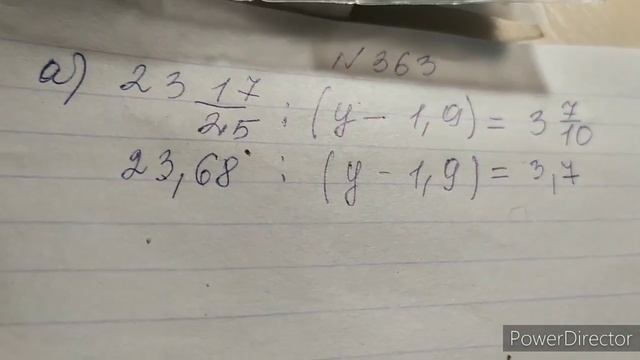 №363
а) 23 17/25 : (y - 1,9) = 3 7/10
23,68 : (y - 1,9) = 3,7
PowerDirector